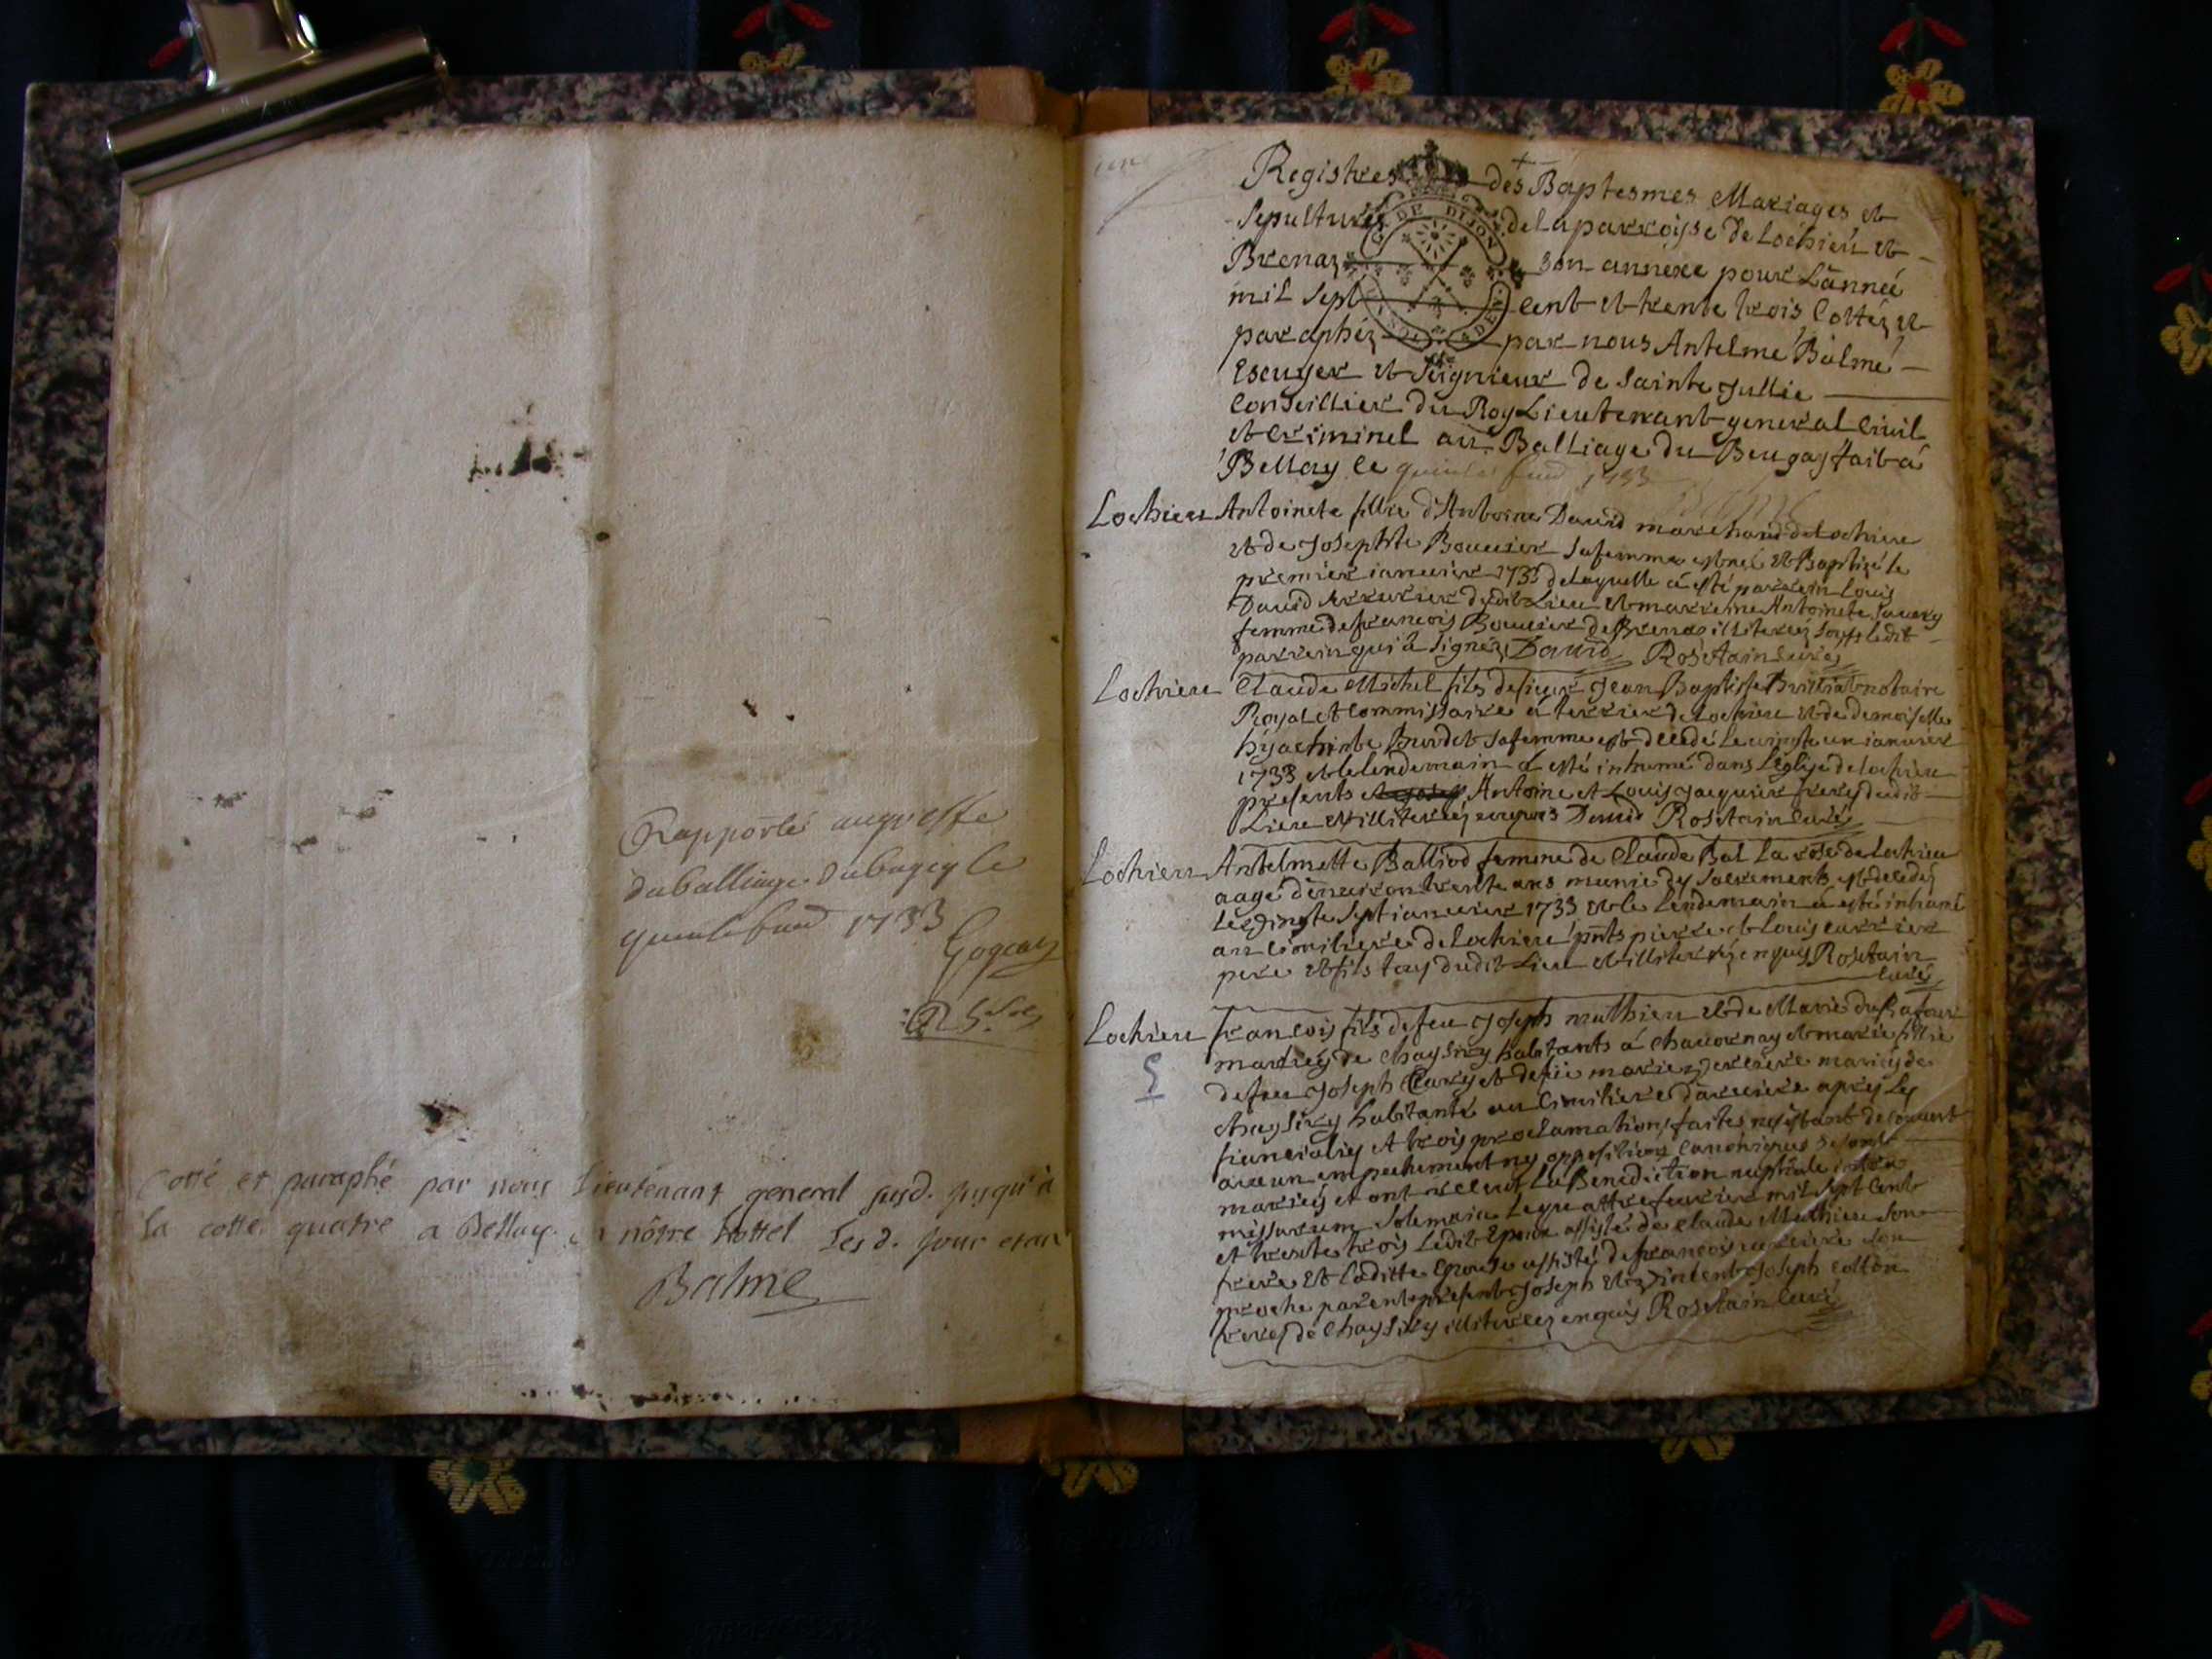 Rapporté au greffe
du balliage du bugey le
1733
Cotté et paraphé par nous Lieutenant general susd. jusqu'à
la cotte quatre a Bellay en nôtre hôttel Les d. jour et an
Balme
Registres des Baptesmes Mariages et
Sepultures de la parroisse de Lochieu et
Brenaz son annexe pour L'année
mil sept cent et trente trois Cottéz et
paraphéz par nous Antelme Balme
Escuyer et Seignieur de Sainte Jullie
Conseillier du Roy Lieutenant general Civil
et Criminel au Balliage du Beugay fait a
Bellay le 1733
GE DE DIJON
Lochieu Antoinete fillie d'Antoine David marchand de Lochieu
et de Josephte Bouvier sa femme est née et Baptizé le
premier ianvier 1733 de laquelle a esté parrein Louis
David serrurier dudit Lieu et marreine Antoinete
femme de francois Bouvier de Brenaz illiterez sauf ledit
parrein qui a signéz David Rostain curé
Lochieu Claude Michel fils de sieur Jean Baptiste Brillat notaire
Royal et Commissaire a terrier de Lochieu et de demoiselle
hyachinte sa femme est decedé le vingte un ianvier
1733 et le lendemain a esté inhumé dans l'eglise de Lochieu
presents Antoine et Louis Jacquier freres dudit
Lieu et illiterez enquis David Rostain curé
Lochieu Antelmette Balliod femme de Claude Bal La rose de Lochieu
aagé d'environ trente ans munie des sacrements est decedéz
le vingte sept ianvier 1733 et le lendemain a esté inhumé
au cimitiere de Lochieu pnts pierre et Louis
pere et fils dudit Lieu et illiteréz enquis Rostain
curé
Lochieu francois fils de feu Joseph mathieu et de Marie
mariés de chaysiry habitants á chavornay et marie fillie
de feu Joseph et de mariés de
chaysiry habitante au cimitiere d'arviere apres les
fiancialies et trois proclamations faites n'estant decouvert
aucun empechement ny oppositions canoniques se sont
mariés et ont receut la Benediction nuptiale intra
missarum solemnia le quattre fevrier mil sept cent
et trente trois ledit Epoux assisté de Claude Mathieu son
frere et laditte Epouse assisté de francois son
proche parent presents Joseph et Joseph
freres de chaysiry illiterez enquis Rostain curé